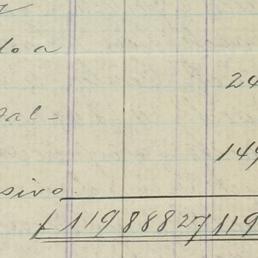 do a
24
sal-
149
sivo
£ 119 888 27 119